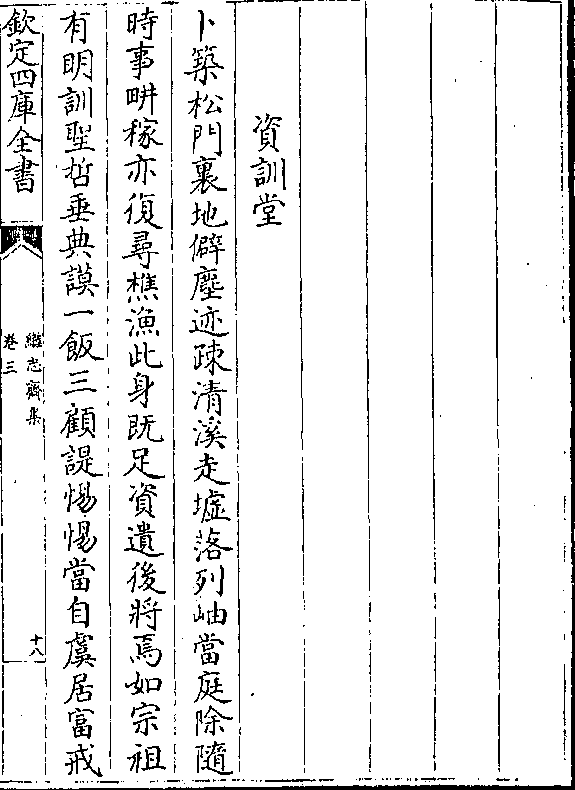 資訓堂
卜築松門裏地僻塵迹疎清溪走墟落列岫當庭除隨
時事畊稼亦復尋樵漁此身既足資遺後將焉如宗祖
有明訓聖哲垂典謨一飯三顧諟惕惕當自虞居富戒
欽定四庫全書
繼志齋集
卷三
十八